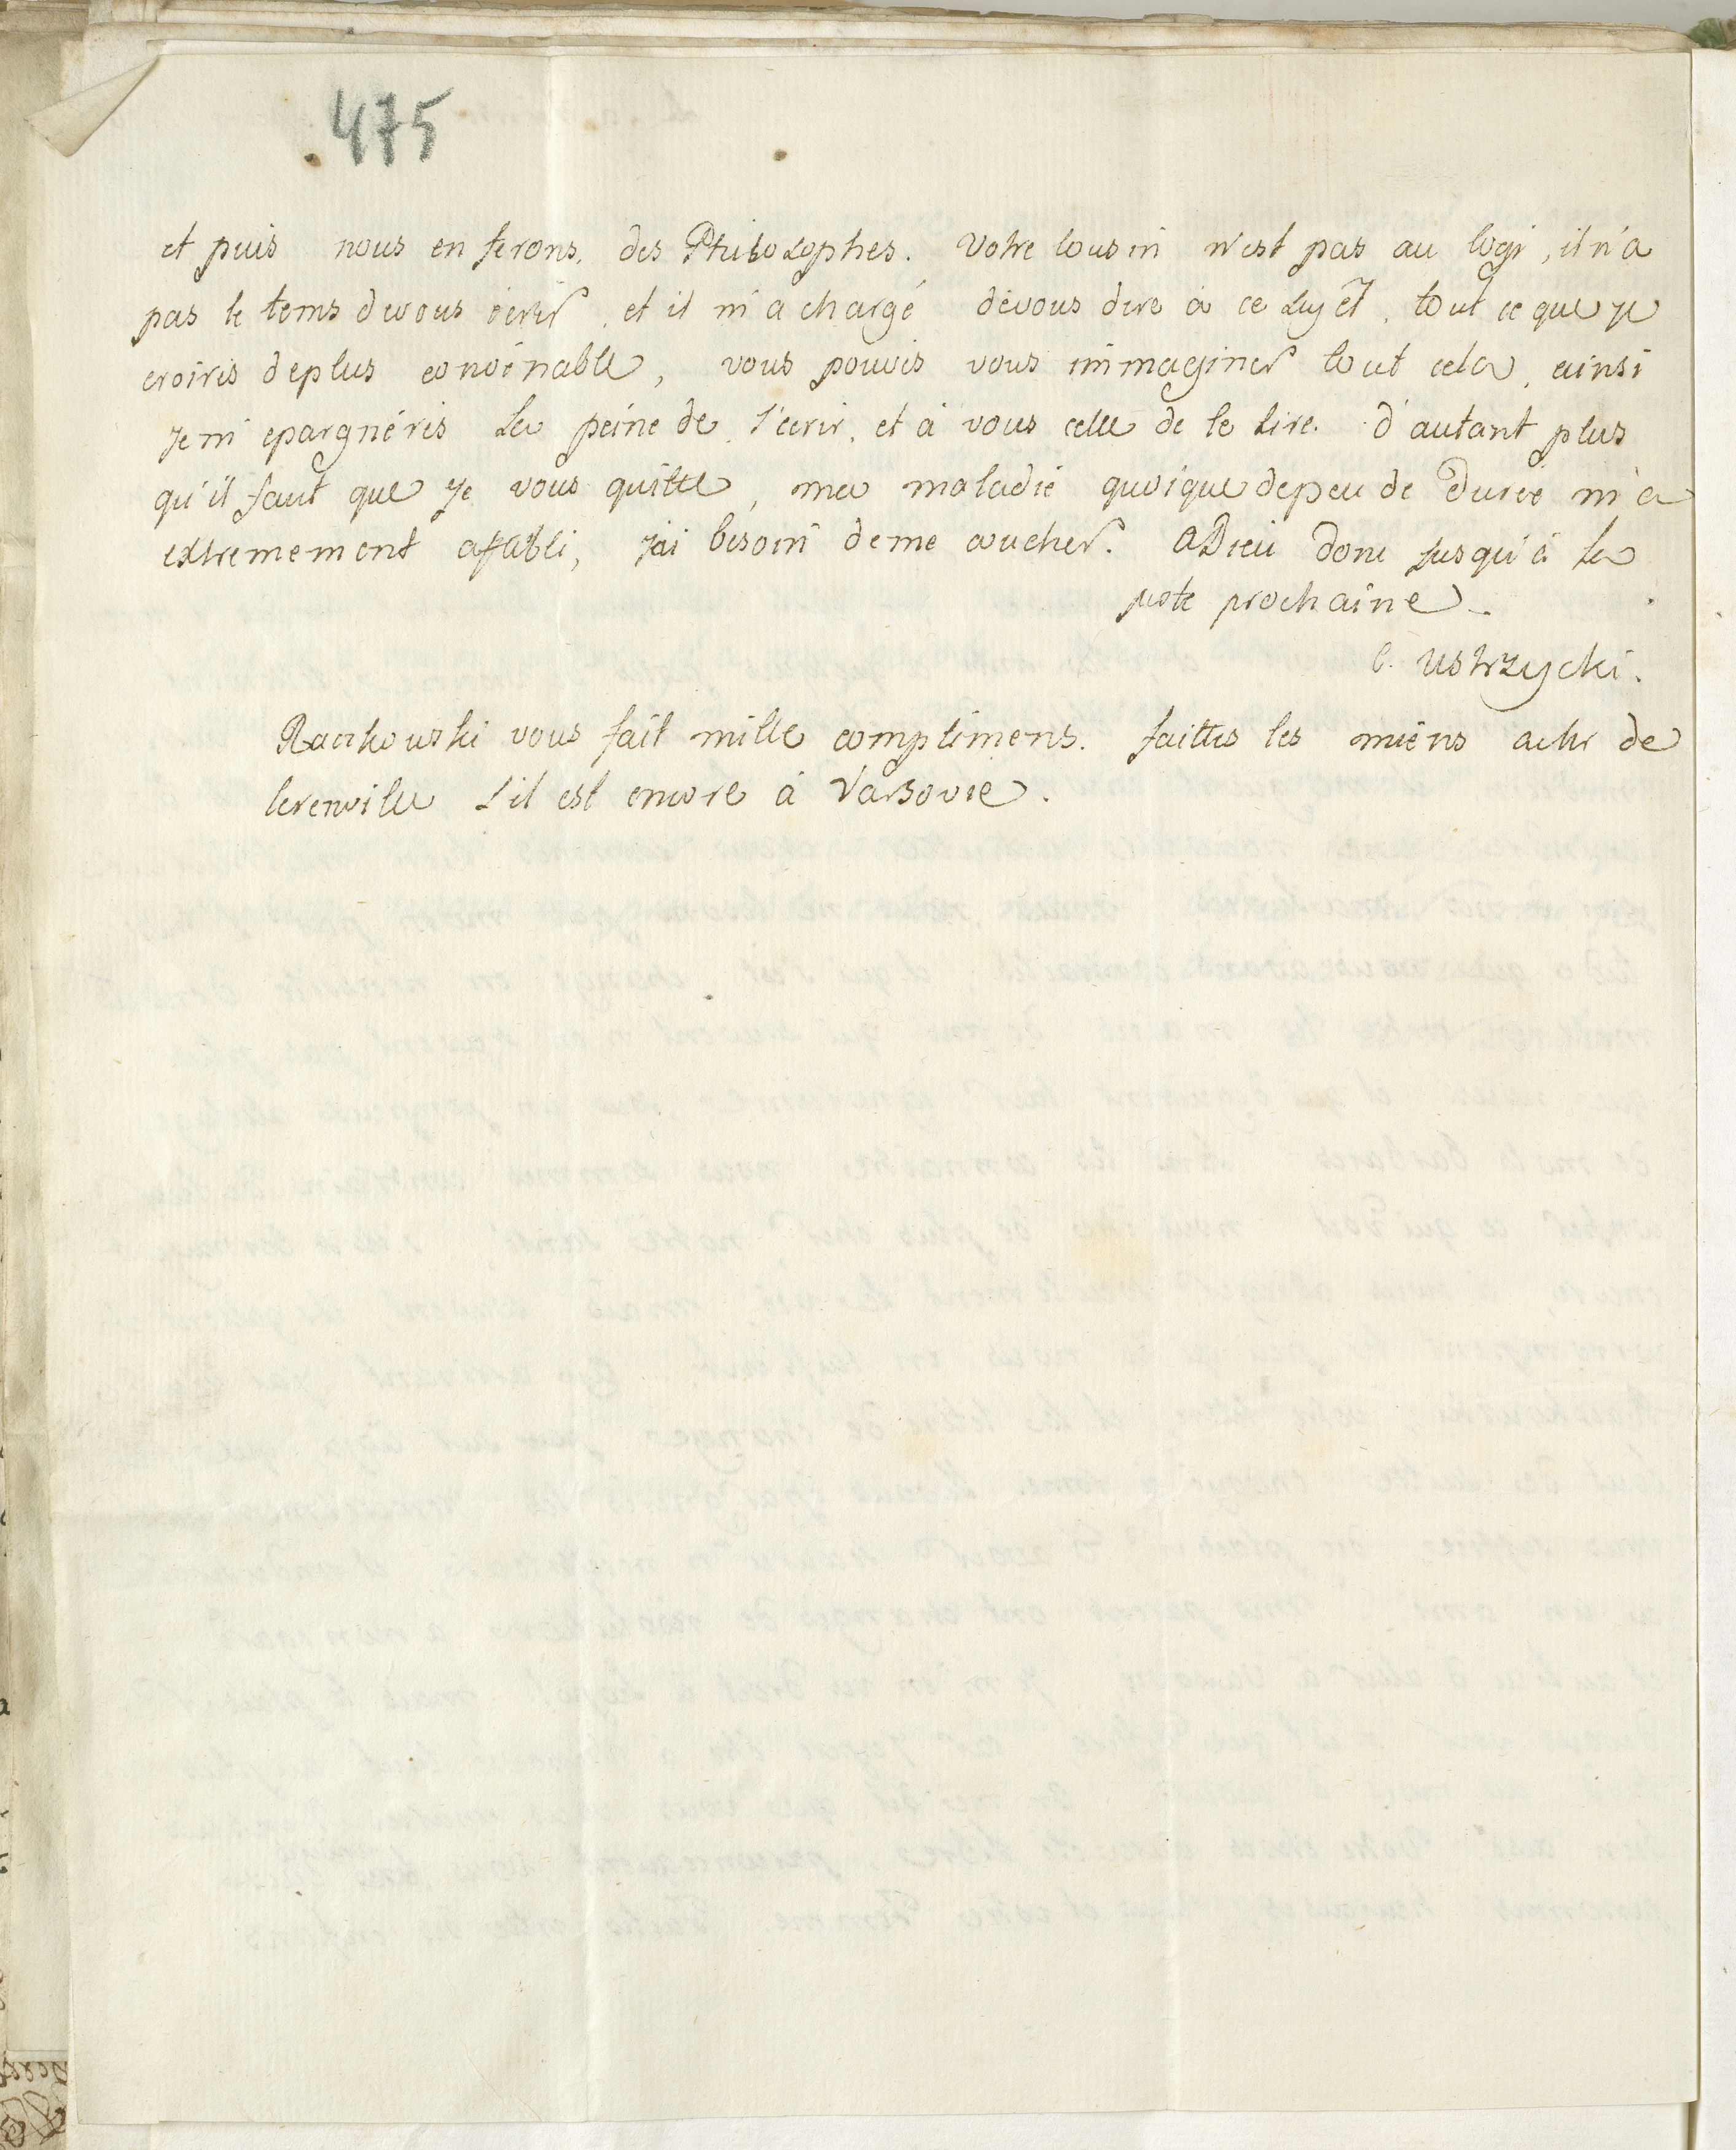 475
et puis nous en ferons, des Philosophes. Votre Cousin n'est pas au logi, il n'a
pas le tems de vous écrir, et il m'a chargé de vous dire à ce sujèt, tout ce que je
croiris de plus convénable, vous pouvis vous immaginer tout cela, ainsi
je m'epargnéris la peine de l'ecrir, et à vous celle de le lire. d'autant plus
qu'il faut que je vous quitte, ma maladie quoique de peu de Durée m'a
extremement afabli, j'ai besoin de me coucher. ADieu Donc jusqu'à la
poste prochaine.
C. Ustrzycki.
Raczkowski vous fait mille complimens. faittes les miens a de
s'il est encore à Varsovie.